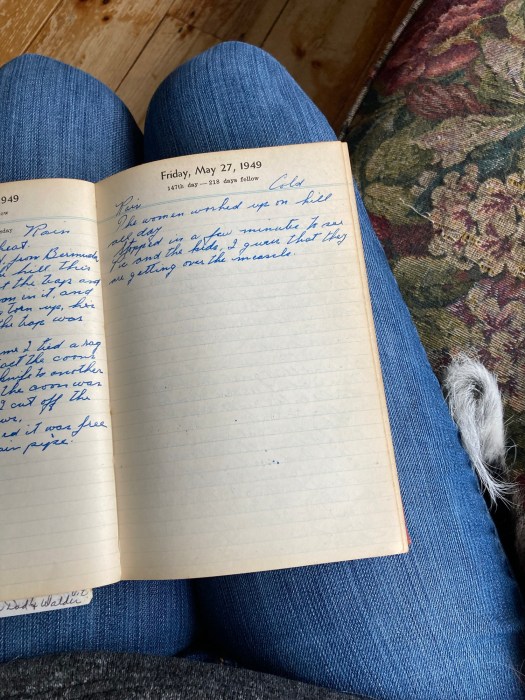 949
ow
day Rain
heat.
d from Bermuda
hill this
t the trap and
on in it, and
torn up, his
the trap was
me I tied a rag
act the coons
knife to another
the coon was
I cut off the
ed it was free
pipe.
Walder
Friday, May 27, 1949
147th day — 218 days follow
Cold
The women worked up on hill
all day
Stopped in a few minutes to see
and the kids, I guess that they
are getting over the measels.